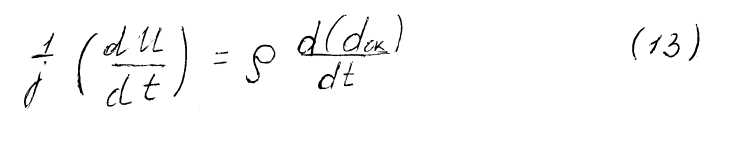 1/j (dU/dt) = ρ d(dок)/dt (13)